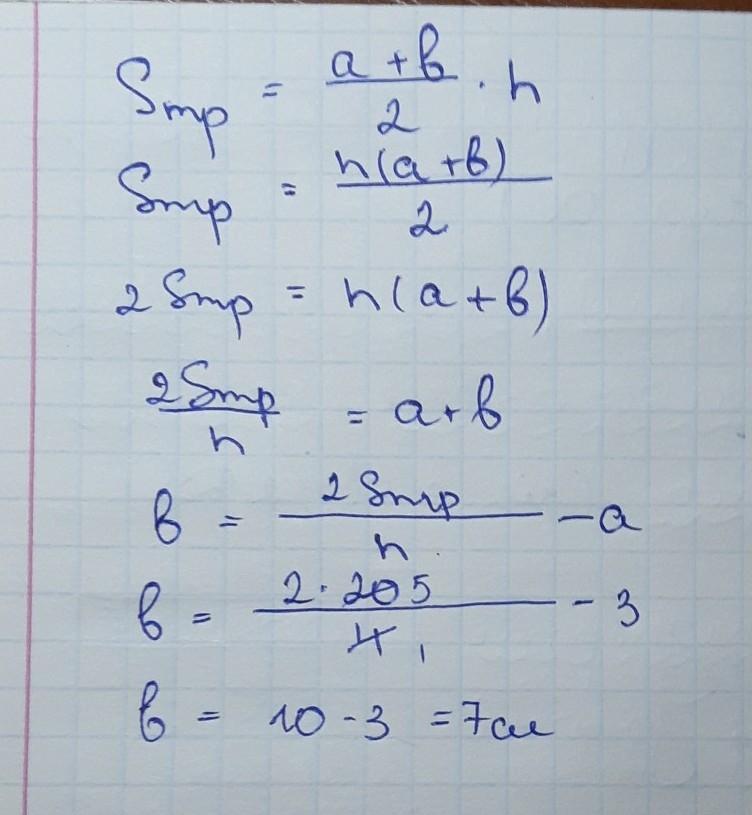 Sтр = (a + b)/2 · h
Sтр = h(a + b)/2
2Sтр = h(a + b)
2Sтр/h = a + b
b = 2Sтр/h - a
b = 2 · 20 5/4 1 - 3
b = 10 - 3 = 7 см